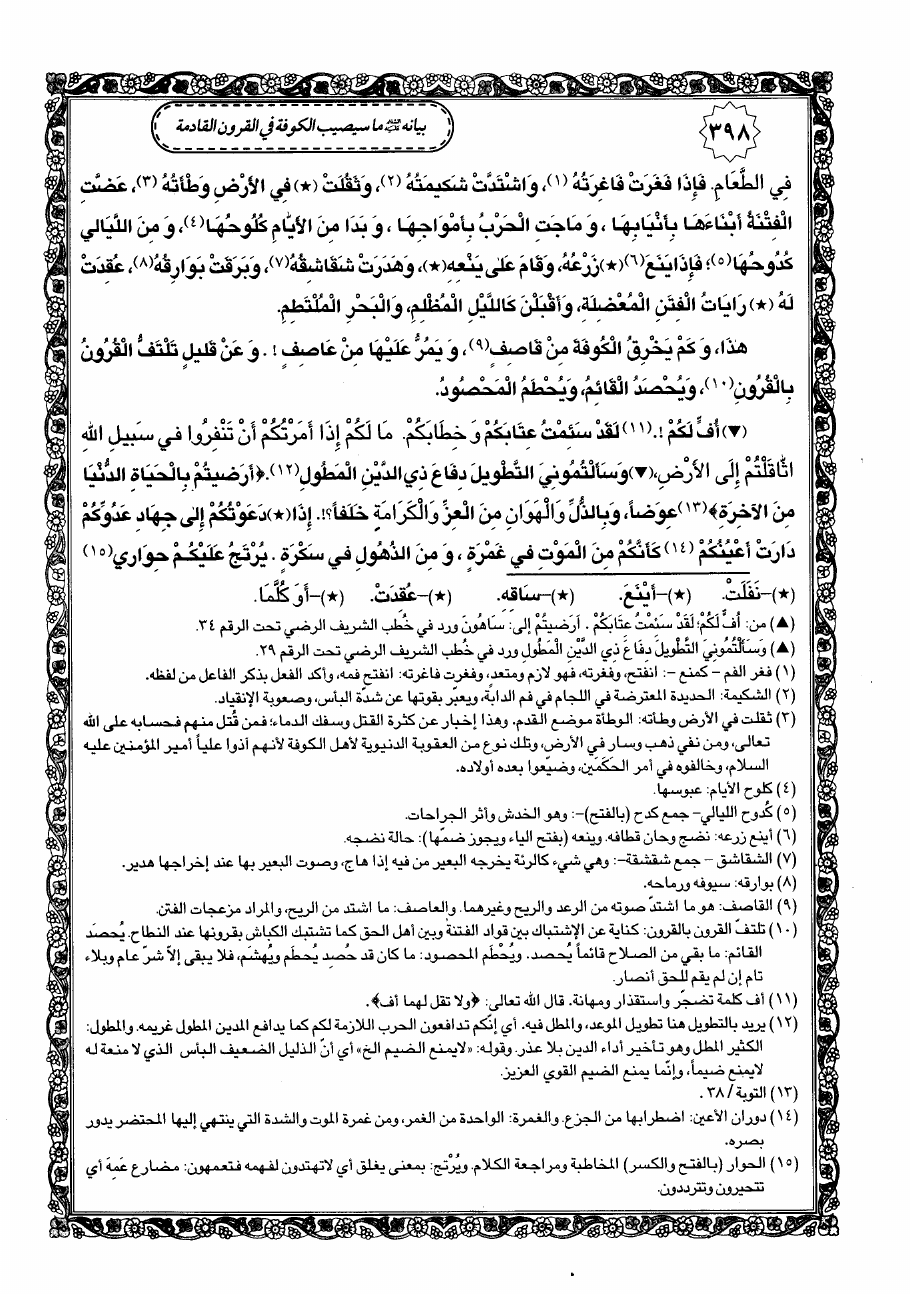 ٣٩٨
بيانه عليه السلام ما سيصيب الكوفة في القرون القادمة
فِي الطَّعَامِ. فَإِذَا فَغَرَتْ فَاغِرَتُهُ (١)، وَاشْتَدَّتْ شَكِيمَتُهُ (٢)، وَثَقُلَتْ (★) فِي الأَرْضِ وَطْأَتُهُ (٣)، عَضَّتِ
الْفِتْنَةُ أَبْنَاءَهَا بِأَنْيَابِهَا ، وَ مَاجَتِ الْحَرْبُ بِأَمْوَاجِهَا ، وَ بَدَا مِنَ الأَيَّامِ كُلُوحُهَا (٤)، وَ مِنَ اللَّيَالِي
كُدُوحُهَا (٥)؛ فَإِذَا يَنَعَ (٦)(★) زَرْعُهُ، وَقَامَ عَلى يَنْعِهِ (★)، وَهَدَرَتْ شَقَاشِقُهُ (٧)، وَبَرَقَتْ بَوَارِقُهُ (٨)، عُقِدَتْ
لَهُ (★) رَايَاتُ الْفِتَنِ الْمُعْضِلَةِ، وَأَقْبَلْنَ كَاللَّيْلِ الْمُظْلِمِ، وَالْبَحْرِ الْمُلْتَطِمِ.
هَذَا، وَ كَمْ يَخْرِقُ الْكُوفَةَ مِنْ قَاصِفٍ (٩)، وَ يَمُرُّ عَلَيْهَا مِنْ عَاصِفٍ ! . وَ عَنْ قَلِيلٍ تَلْتَفُّ الْقُرُونُ
بِالْقُرُونِ (١٠)، وَيُحْصَدُ الْقَائِمُ، وَيُحْطَمُ الْمَحْصُودُ.
(▼) أُفٍّ لَكُمْ !. (١١) لَقَدْ سَئِمْتُ عِتَابَكُمْ وَ خِطَابَكُمْ. مَا لَكُمْ إِذَا أَمَرْتُكُمْ أَنْ تَنْفِرُوا في سَبِيلِ اللهِ
اثَّاقَلْتُمْ إِلَى الأَرْضِ، (▼) وَسَأَلْتُمُونِيَ التَّطْوِيلَ دِفَاعَ ذِي الدَّيْنِ الْمَطُولِ (١٢). ﴿أَرَضِيتُمْ بِالْحَيَاةِ الدُّنْيَا
مِنَ الآخِرَةِ﴾ (١٣) عِوَضاً، وَبِالذُّلِّ وَالْهَوَانِ مِنَ الْعِزِّ وَالْكَرَامَةِ خَلَفاً؟!. إِذَا (★) دَعَوْتُكُمْ إِلى جِهَادِ عَدُوِّكُمْ
دَارَتْ أَعْيُنُكُمْ (١٤) كَأَنَّكُمْ مِنَ الْمَوْتِ فِي غَمْرَةٍ ، وَ مِنَ الذُّهُولِ في سَكْرَةٍ . يُرْتَجُ عَلَيْكُمْ حِوَارِي (١٥)
(★)-نَفَلَتْ. (★)-أَيْنَعَ. (★)-سَاقِهِ. (★)-عُقِدَتْ. (★)-أَوَ كُلَّمَا.
(▲) من: أُفٍّ لَكُمْ؛ لَقَدْ سَئِمْتُ عِتَابَكُمْ . أَرَضِيتُمْ إلى: سَاهُونَ ورد في خُطب الشريف الرضي تحت الرقم ٣٤.
(▲) وَسَأَلْتُمُونِيَ التَّطْوِيلَ دِفَاعَ ذِي الدَّيْنِ الْمَطُولِ ورد في خُطب الشريف الرضي تحت الرقم ٢٩.
(١) فغر الفم - كمنع -: انفتح، وفغرته، فهو لازم ومتعد، وفغرت فاغرته: انفتح فمه، وأكد الفعل بذكر الفاعل من لفظه.
(٢) الشكيمة: الحديدة المعترضة في اللجام في فم الدابة، ويعبّر بقوتها عن شدّة البأس، وصعوبة الإنقياد.
(٣) ثقلت في الأرض وطأته: الوطأة موضع القدم. وهذا إخبار عن كثرة القتل وسفك الدماء؛ فمن قُتل منهم فحسابه على الله
تعالى، ومن نفي ذهب وسار في الأرض، وتلك نوع من العقوبة الدنيوية لأهل الكوفة لأنهم آذوا علياً أمير المؤمنين عليه
السلام، وخالفوه في أمر الحَكَمَين، وضيّعوا بعده أولاده.
(٤) كلوح الأيام: عبوسها.
(٥) كُدوح الليالي- جمع كدح (بالفتح)-: وهو الخدش وأثر الجراحات.
(٦) أينع زرعه: نضج وحان قطافه. وينعه (بفتح الياء ويجوز ضمّها): حالة نضجه.
(٧) الشقاشق - جمع شقشقة-: وهي شيء كالرئة يخرجه البعير من فيه إذا هاج، وصوت البعير بها عند إخراجها هدير.
(٨) بوارقه: سيوفه ورماحه.
(٩) القاصف: هو ما اشتدّ صوته من الرعد والريح وغيرهما. والعاصف: ما اشتد من الريح، والمراد مزعجات الفتن.
(١٠) تلتفّ القرون بالقرون: كناية عن الإشتباك بين قواد الفتنة وبين أهل الحق كما تشتبك الكباش بقرونها عند النطاح. يُحصَد
القائم: ما بقي من الصلاح قائماً يُحصد. ويُحْطَم المحصود: ما كان قد حُصِد يُحطَم ويُهشَم، فلا يبقى إلاّ شرّ عام وبلاء
تام إن لم يقم للحق أنصار.
(١١) أف كلمة تضجّر واستقذار ومهانة. قال الله تعالى: ﴿ولا تقل لهما أف﴾.
(١٢) يريد بالتطويل هنا تطويل الموعد، والمطل فيه. أي إنّكم تدافعون الحرب اللازمة لكم كما يدافع المدين المطول غريمه. والمطول:
الكثير المطل وهو تأخير أداء الدين بلا عذر. وقوله: «لايمنع الضيم الخ» أي أنّ الذليل الضعيف البأس الذي لا منعة له
لايمنع ضيماً، وإنّما يمنع الضيم القوي العزيز.
(١٣) التوبة / ٣٨ .
(١٤) دوران الأعين: اضطرابها من الجزع. والغمرة: الواحدة من الغمر، ومن غمرة الموت والشدة التي ينتهي إليها المحتضر يدور
بصره.
(١٥) الحوار (بالفتح والكسر) المخاطبة ومراجعة الكلام. ويُرْتج: بمعنى يغلق أي لاتهتدون لفهمه فتعمهون: مضارع عَمِهَ أي
تتحيرون وتترددون.